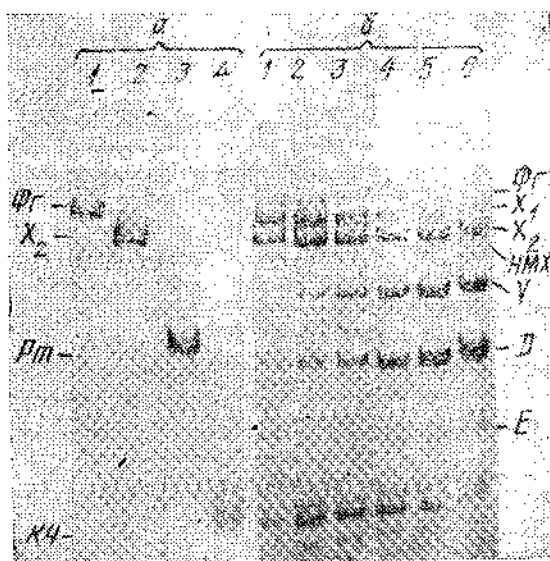 а б
1 2 3 4 1 2 3 4 5 6
Фг
X₂
Рт
КЧ
Фг
X₁
X₂
НМХ
Y
D
E